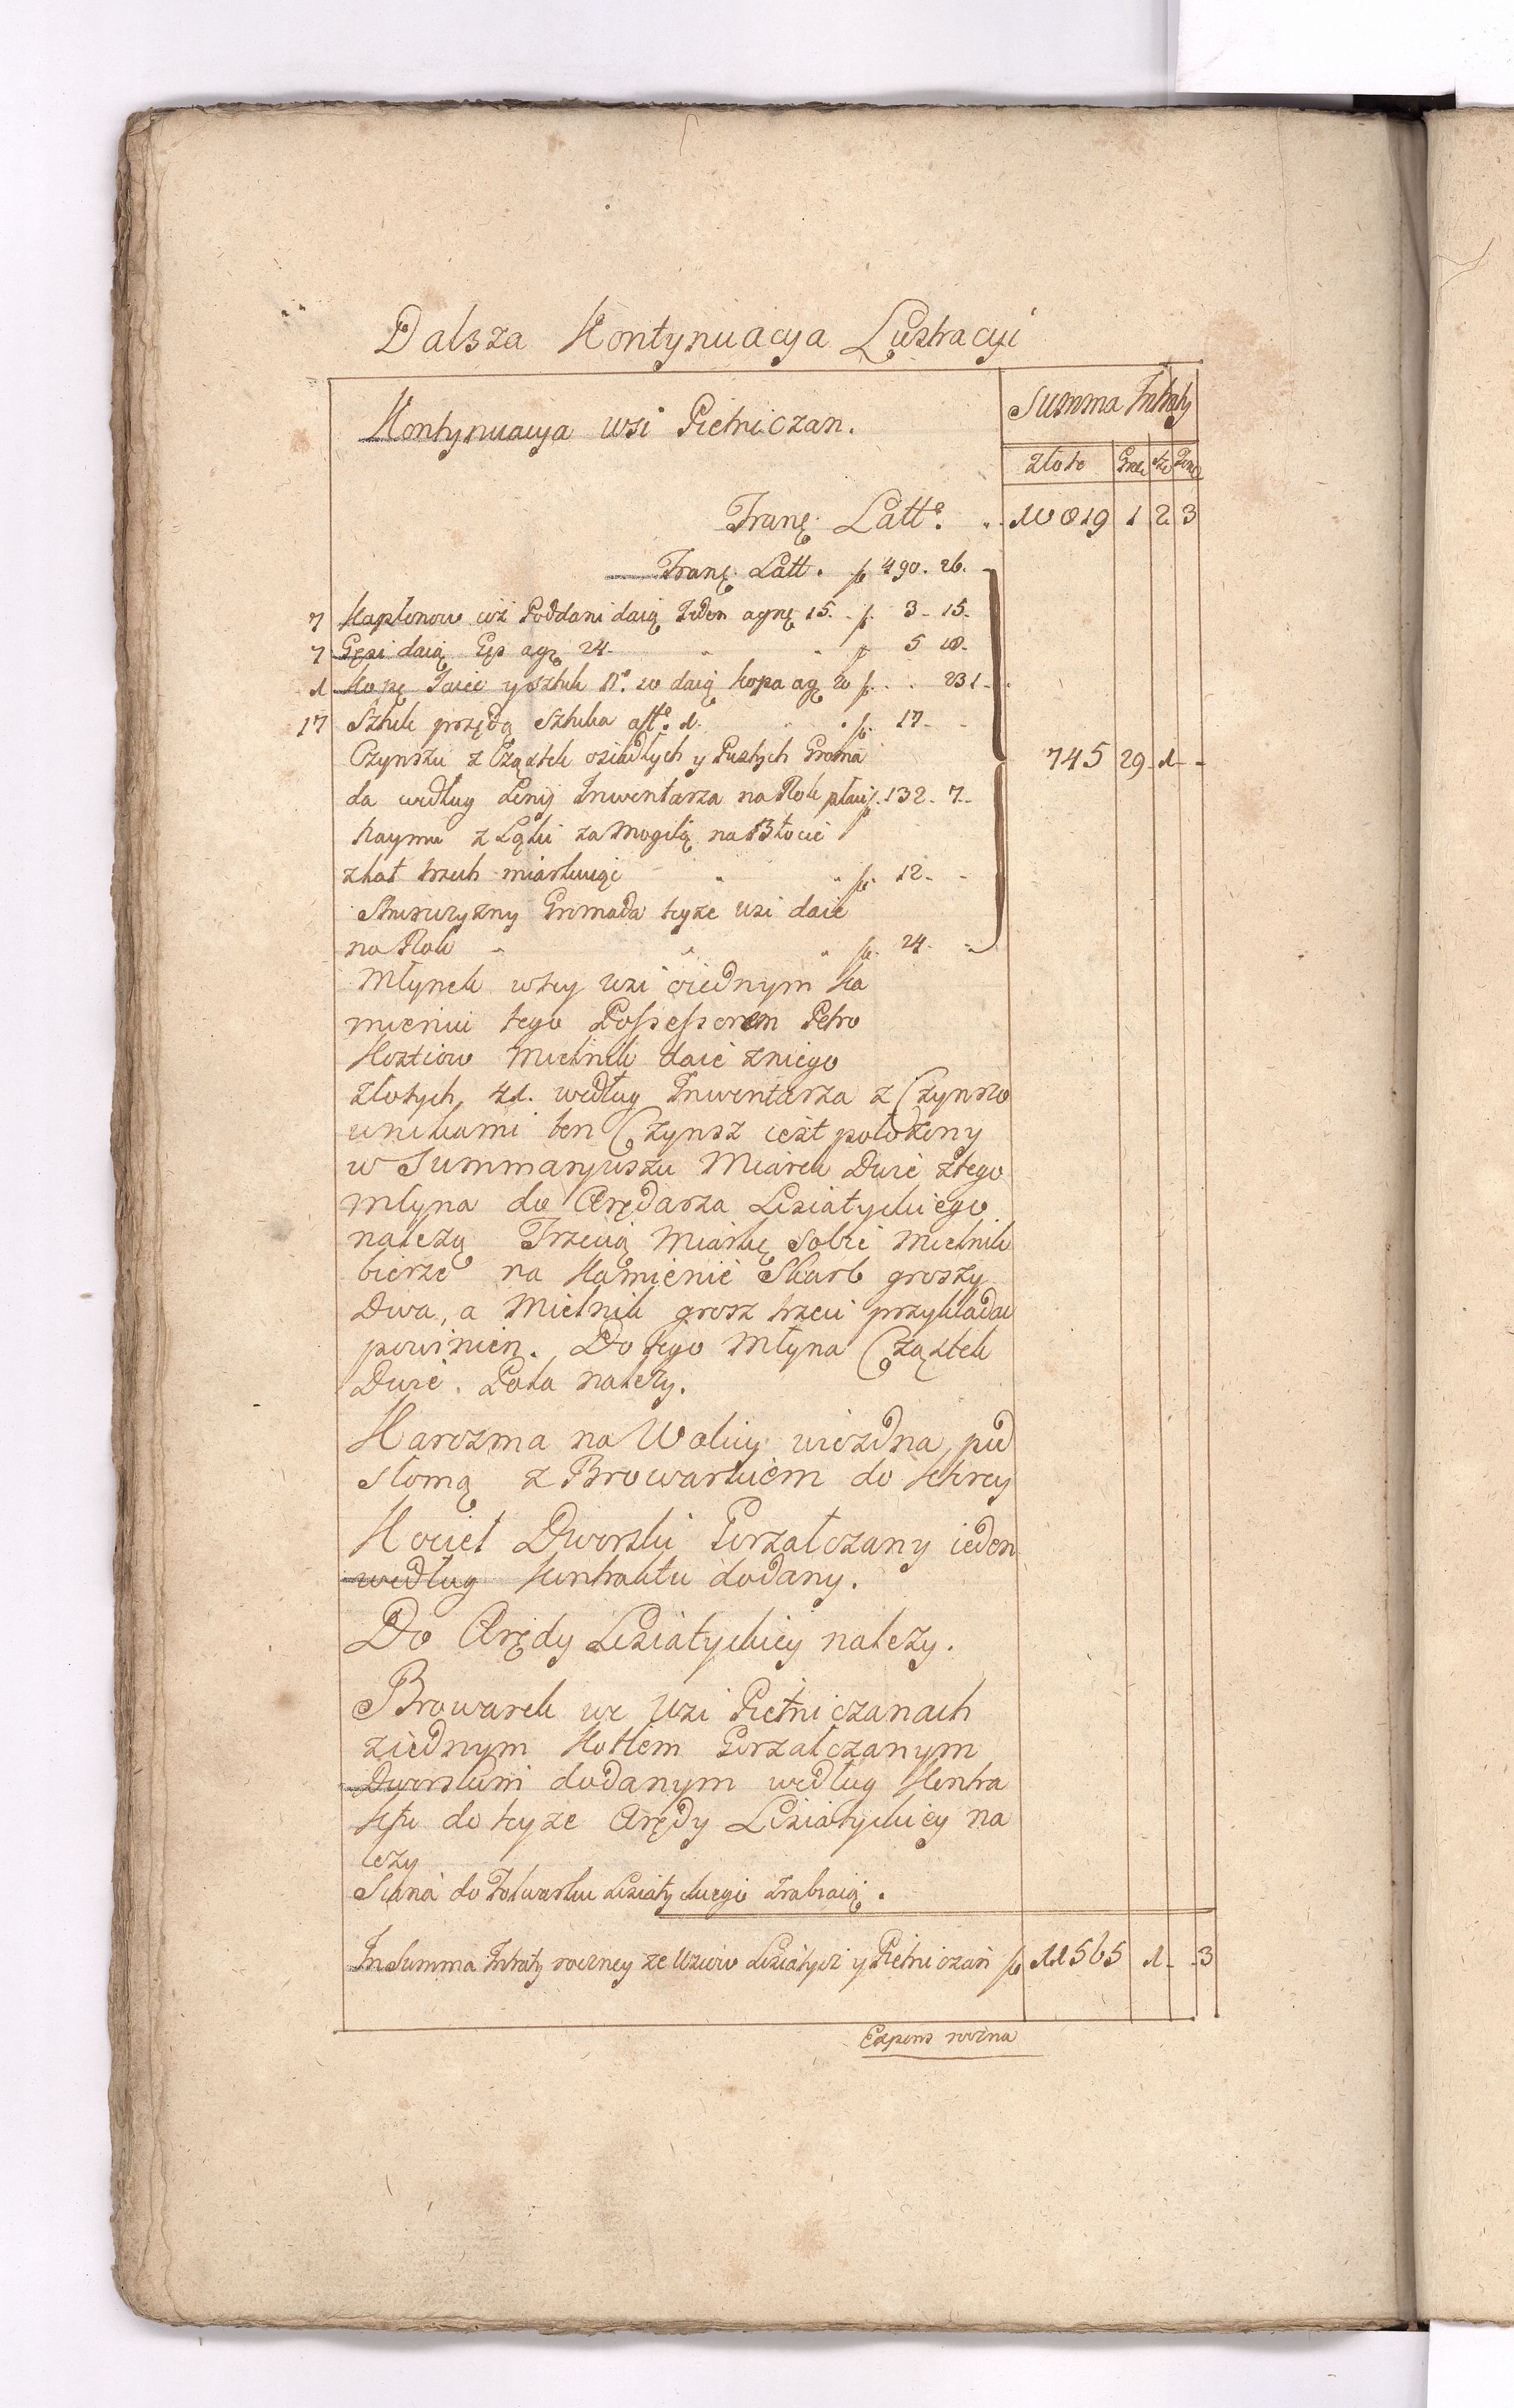 Dalsza Kontynuacya Lustracyi
Kontynuacya wsi Pietniczan.
Summa Intraty
Złote Gro Sze Pene
Tranς. Latt°. 10819 1 2 3
Tranς. Latt. f 490. 26.
7 Kapłonow ciż Poddani daią Jeden agrς 15. f. 3 - 15 -
7 Gęsi daią Gęś agrς 24. f 5 18 -
1 Kopę Jaiec y sztuk N°. 10 daią kopa ag 20 f. . . 23 1 -
17 Sztuk przędą Sztuka aff°. 1. f. 17 - -
Czynszu z Cząstek osiadłych y Pustych Groma
da według Lenij Inwentarza na Rok płaci f. 132 - 7 -
745 29 - 1 - -
Naymu z Łąki za Mogiłą na Błocie
z lat trzech miarkuiąc f. 12 - -
Stróżczyzny Gromada teyże wsi daie
na Rok f. 24 - -
Młynek w tey wsi o iednym Ka
mieniu tego Possessorem Petro
Kostiow Mielnik daie z niego
złotych, 41. według Inwentarza z Czynszo
wnikami ten Czynsz iest położony
w Summaryuszu Miarek Dwie z tego
Młyna do Arędarza Lisiatyckiego
należą Trzecią Miarkę Sobie Mielnik
bierze na Kamienie Skarb groszy
Dwa, a Mielnik grosz trzeci przykładać
powinien. Do tego Młyna Cząstek
Dwie. Pola należy.
Karczma na Wolicy wiezdna, pod
słomą z Browarkiem do ktorey
Kocieł Dworski Gorzałczany ieden
według kontraktu dodany.
Do Arędy Lisiatyckiey należy.
Browarek we wsi Pietniczanach
z iednym Kotłem Gorzałczanym
Dworskim dodanym według Kontra
ktu do teyże Arędy Lisiatyckiey na
leży
Siana do Folwarku Lisiatyckiego zrabiaią.
In Summa Intraty roczney ze Wsiow Lisiatycz y Pietniczan f 11565 1 - - 3
Expens roczna